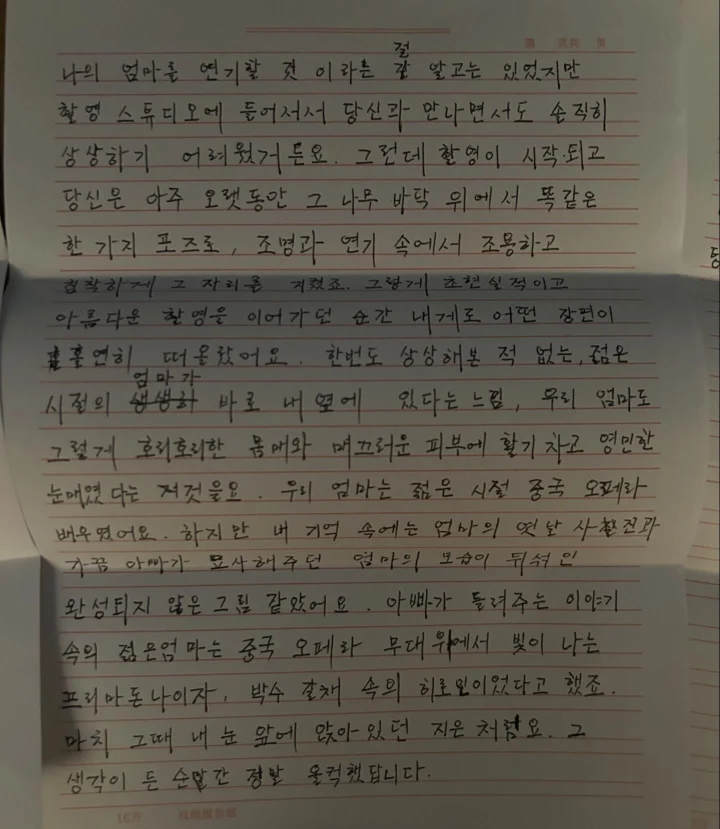 절
나의 엄마를 연기할 것 이라는 잘 알고는 있었지만
촬영 스튜디오에 들어서서 당신과 만나면서도 솔직히
상상하기 어려웠거든요. 그런데 촬영이 시작되고
당신은 아주 오랫동안 그 나무 바닥 위에서 똑같은
한 가지 포즈로, 조명과 연기 속에서 조용하고
침착하게 그 자리를 지켰죠. 그렇게 초현실적이고
아름다운 촬영을 이어가던 순간 내게로 어떤 장면이
홀연히 떠올랐어요. 한번도 상상해본 적 없는, 젊은
엄마가
시절의 생생하 바로 내 옆에 있다는 느낌, 우리 엄마도
그렇게 호리호리한 몸매와 매끄러운 피부에 활기 차고 영민한
눈매였다는 저것을요. 우리 엄마는 젊은 시절 중국 오페라
배우였어요. 하지만 내 기억 속에는 엄마의 옛날 사활진과
가끔 아빠가 묘사해주던 엄마의 모습이 뒤섞인
완성되지 않은 그림 같았어요. 아빠가 들려주는 이야기
속의 젊은엄마는 중국 오페라 무대위에서 빛이 나는
프리마돈나이자, 박수 갈채 속의 히로인이었다고 했죠.
마치 그때 내 눈 앞에 앉아있던 지은처럼요. 그
생각이 든 순간 정말 울컥했답니다.